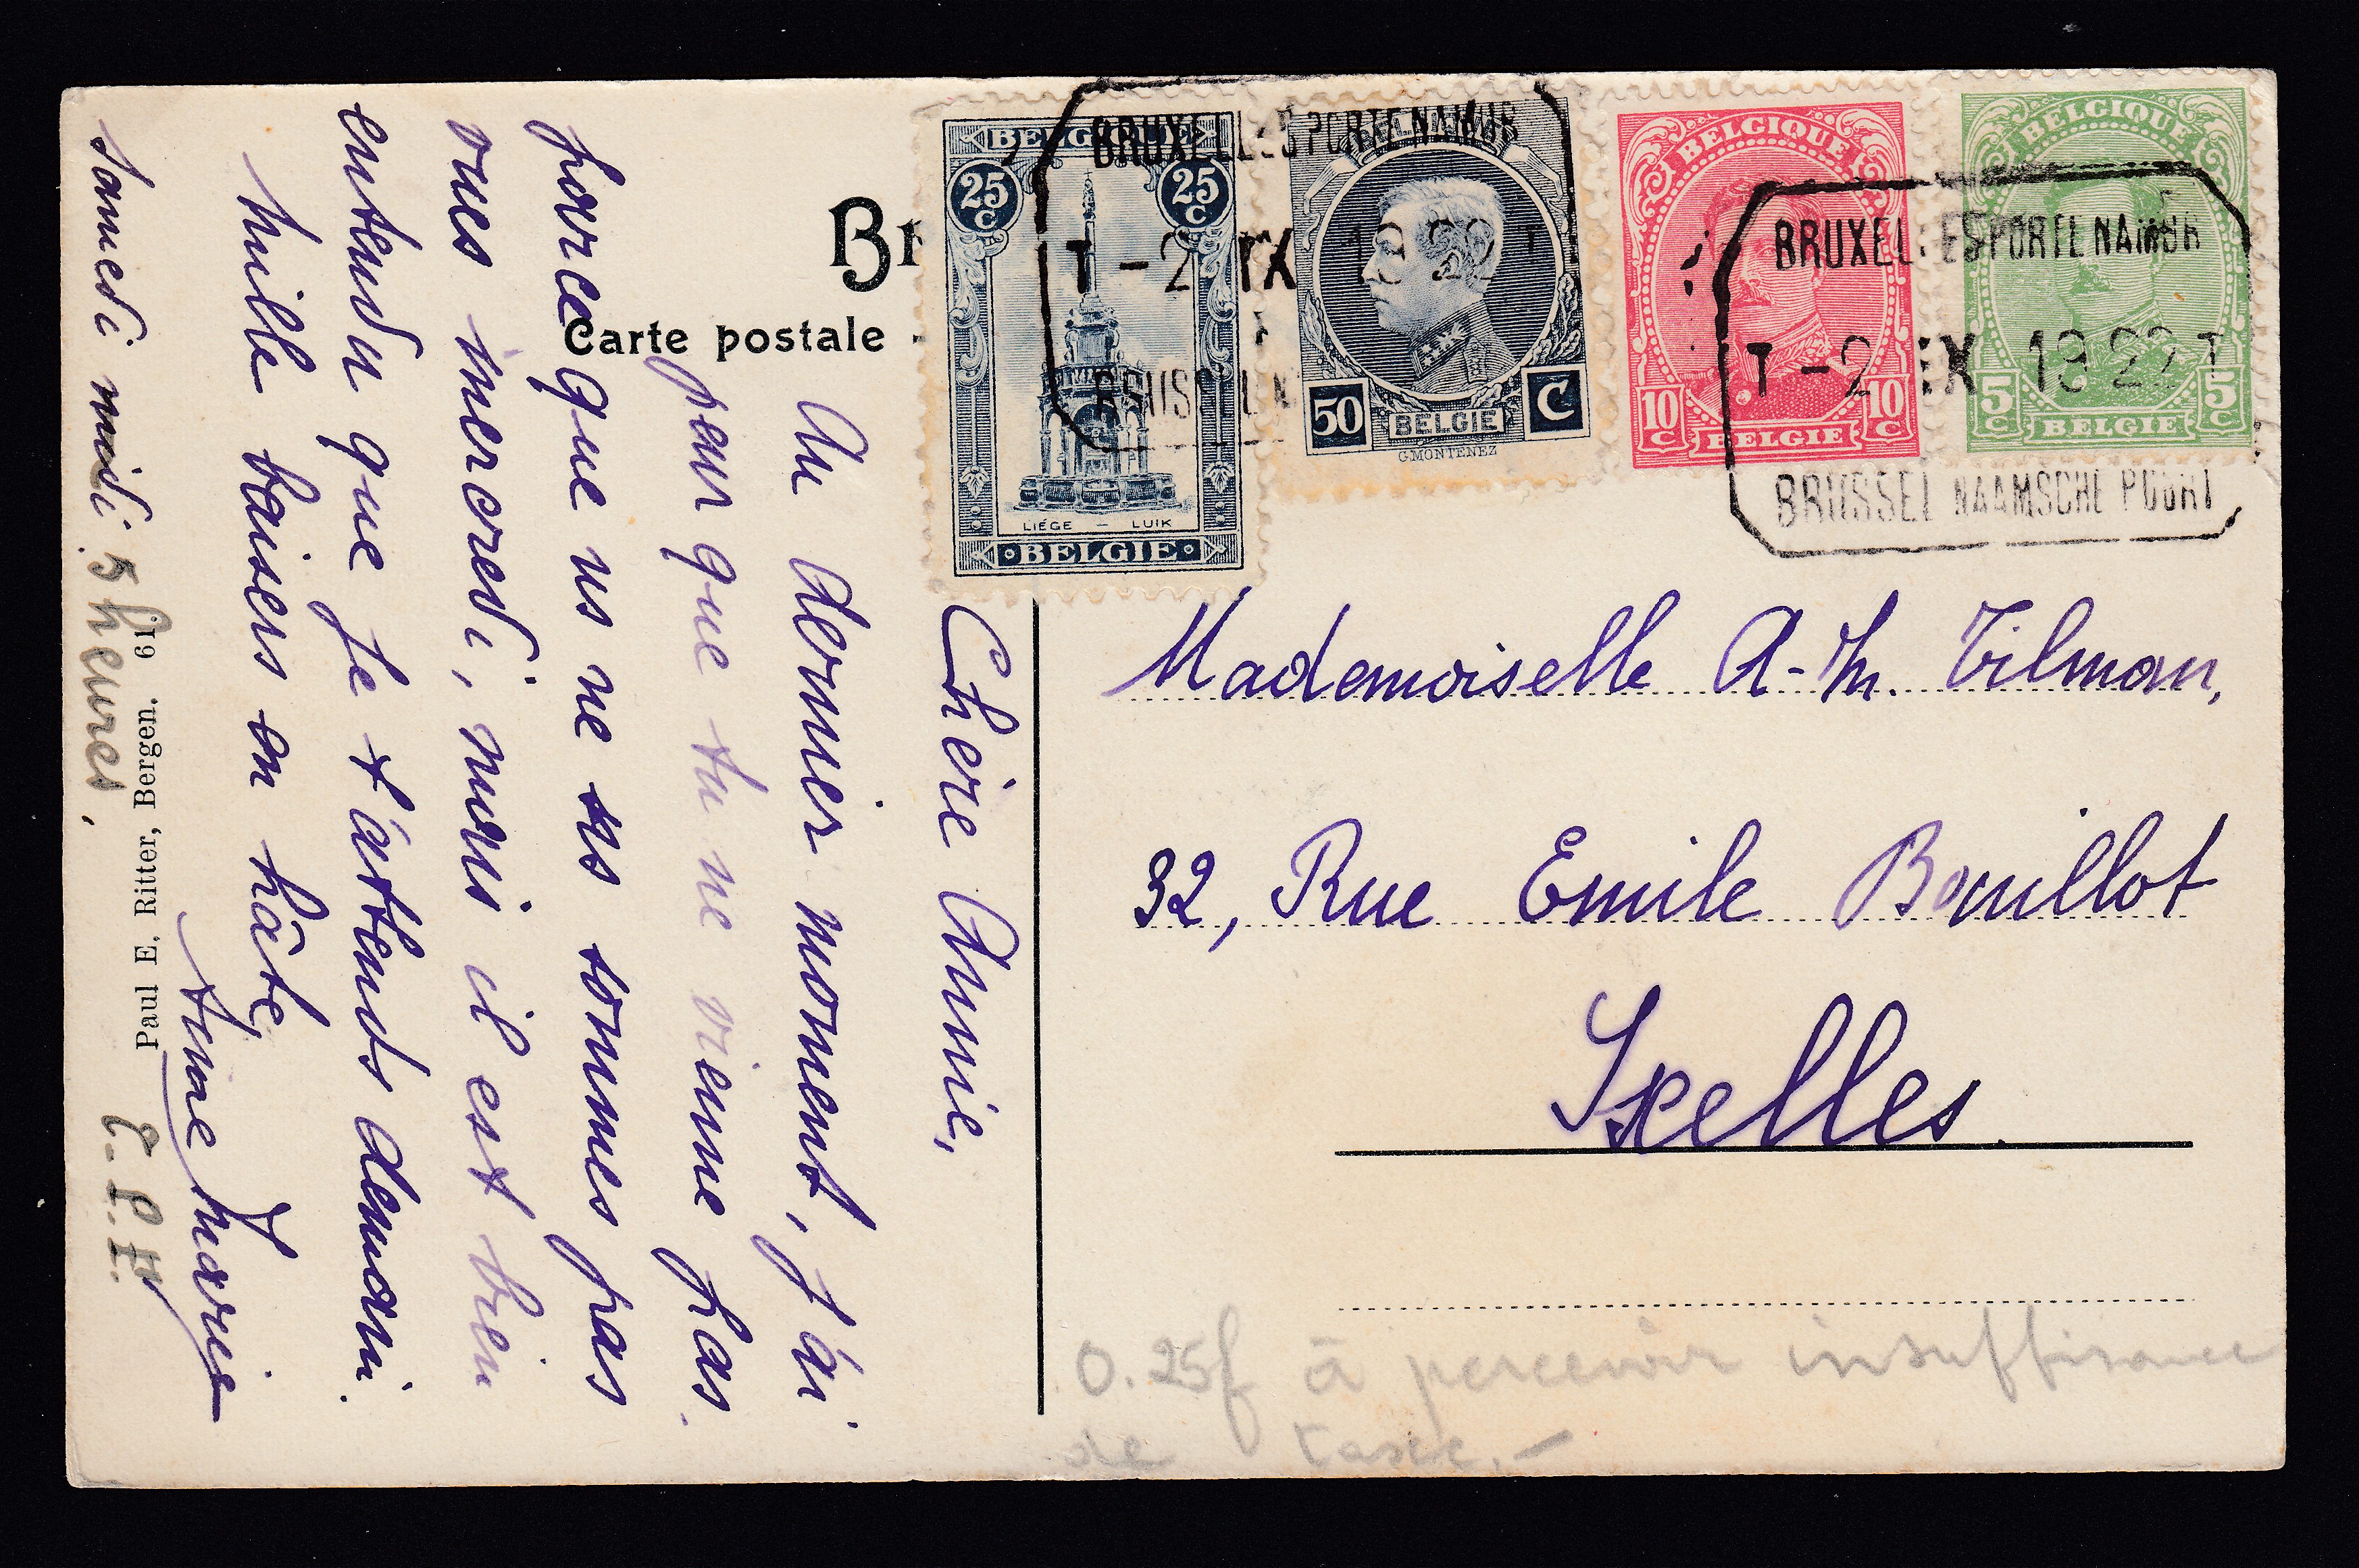 BELGIQUE
25 C 25 C
LIÉGE – LUIK
BELGIE
50 C
BELGIE
G.MONTENEZ
BELGIQUE
10 C 10 C
BELGIE
BELGIQUE
5 C 5 C
BELGIE
BRUXELLES PORTE NAMUR
T -2 IX 1922 T
BRUXELLES PORTE NAMUR
T -2 IX 1922 T
BRUSSEL NAAMSCHE POORT
Br
Carte postale -
Chère Annie,
Au dernier moment, j'ai
peur que tu ne vienne pas
parce que ns ne ns sommes pas
vues mercredi, mais il est bien
entendu que je t'attends demain.
Mille baisers en hâte,
Anne Marie
samedi midi 5 heures.
Paul E. Ritter, Bergen. 61.
Mademoiselle A-M. Tilman,
32, Rue Emile Bouillot
Ixelles.
0.25f à percevoir insuffisance
de taxe.-